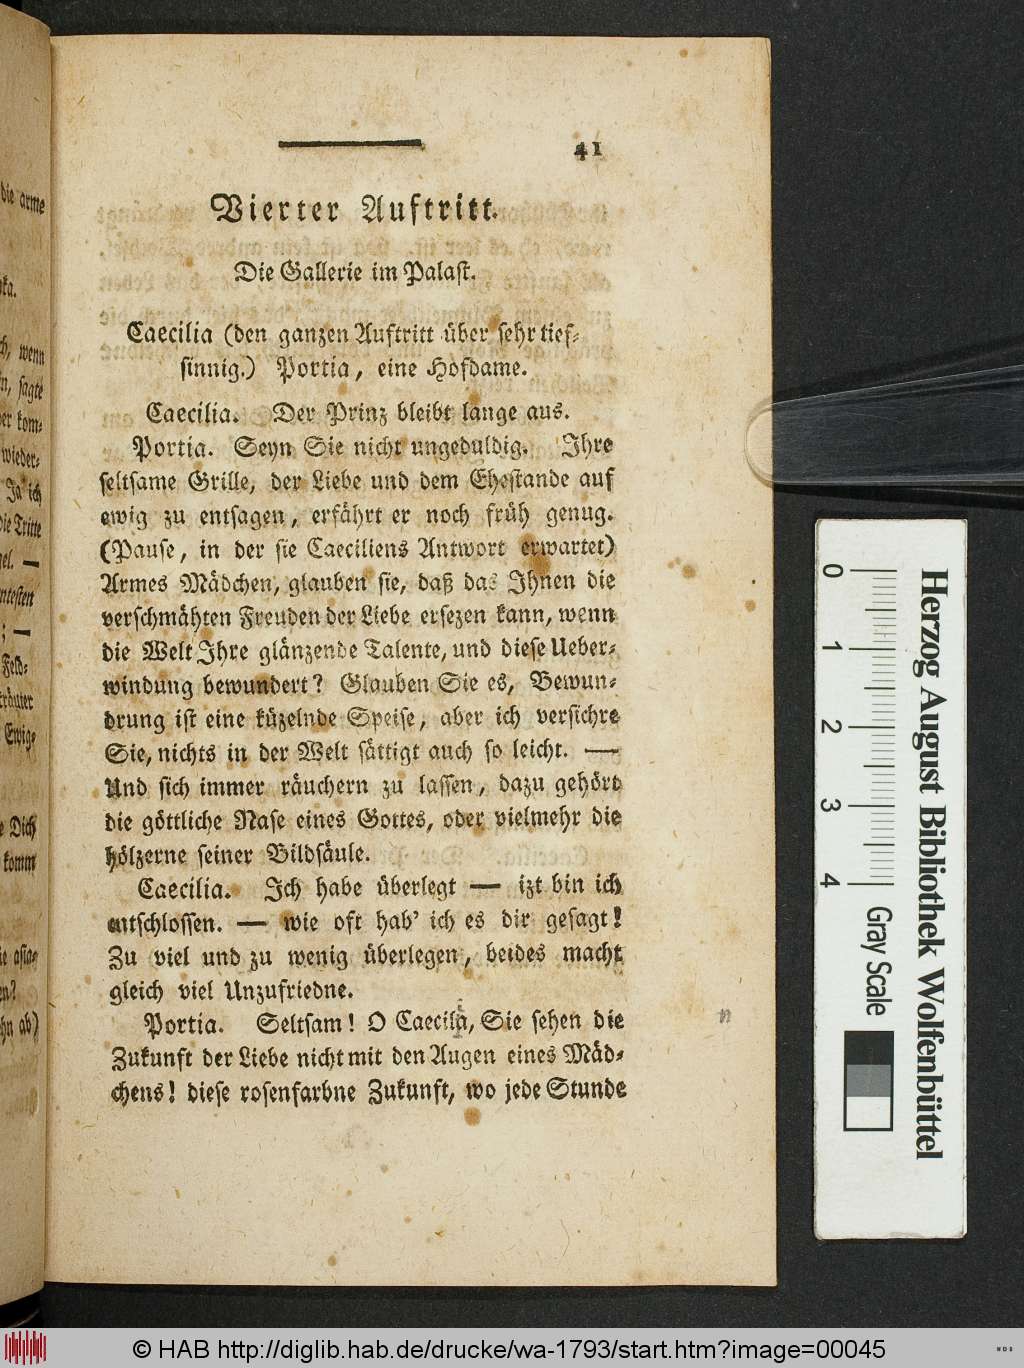 41
Vierter Auftritt.
Die Gallerie im Palast.
Caecilia (den ganzen Auftritt über sehr tief-
sinnig.) Portia, eine Hofdame.
Caecilia. Der Prinz bleibt lange aus.
Portia. Seyn Sie nicht ungeduldig. Ihre
seltsame Grille, der Liebe und dem Ehestande auf
ewig zu entsagen, erfährt er noch früh genug.
(Pause, in der sie Caeciliens Antwort erwartet)
Armes Mädchen, glauben sie, daß das Ihnen die
verschmähten Freuden der Liebe ersezen kann, wenn
die Welt Ihre glänzende Talente, und diese Ueber-
windung bewundert? Glauben Sie es, Bewun-
drung ist eine küzelnde Speise, aber ich versichre
Sie, nichts in der Welt sättigt auch so leicht. —
Und sich immer räuchern zu lassen, dazu gehört
die göttliche Nase eines Gottes, oder vielmehr die
hölzerne seiner Bildsäule.
Caecilia. Ich habe überlegt — izt bin ich
entschlossen. — wie oft hab' ich es dir gesagt!
Zu viel und zu wenig überlegen, beides macht
gleich viel Unzufriedne.
Portia. Seltsam! O Caecilia, Sie sehen die
Zukunft der Liebe nicht mit den Augen eines Mäd-
chens! diese rosenfarbne Zukunft, wo jede Stunde
die arme
ka.
wenn
sagte
er kom-
wieder-
Ja ich
die Tritte
gel. —
ntesten
; —
Feld-
kräuter
Ewig-
e Dich
komm
ie asia-
en?
hn ab)
0 1 2 3 4
Gray Scale
Herzog August Bibliothek Wolfenbüttel
© HAB http://diglib.hab.de/drucke/wa-1793/start.htm?image=00045